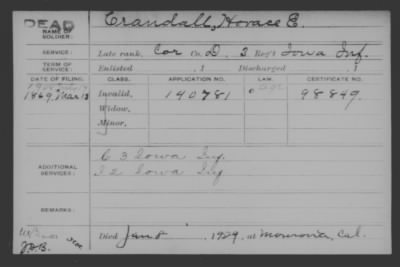 DEAD
NAME OF SOLDIER: Crandall, Horace E.
SERVICE: Late rank, Cor Co. D, 2 Reg't Iowa Inf.
TERM OF SERVICE: Enlisted , 1 Discharged , 1
DATE OF FILING. CLASS. APPLICATION NO. LAW. CERTIFICATE NO.
1869, Mar 13 Invalid, 190781 98849.
Widow,
Minor,
ADDITIONAL SERVICES: C 3 Iowa Inf.
I 2 Iowa Inf
REMARKS:
Died Jan 8 , 1929, at Monrovia, Cal.